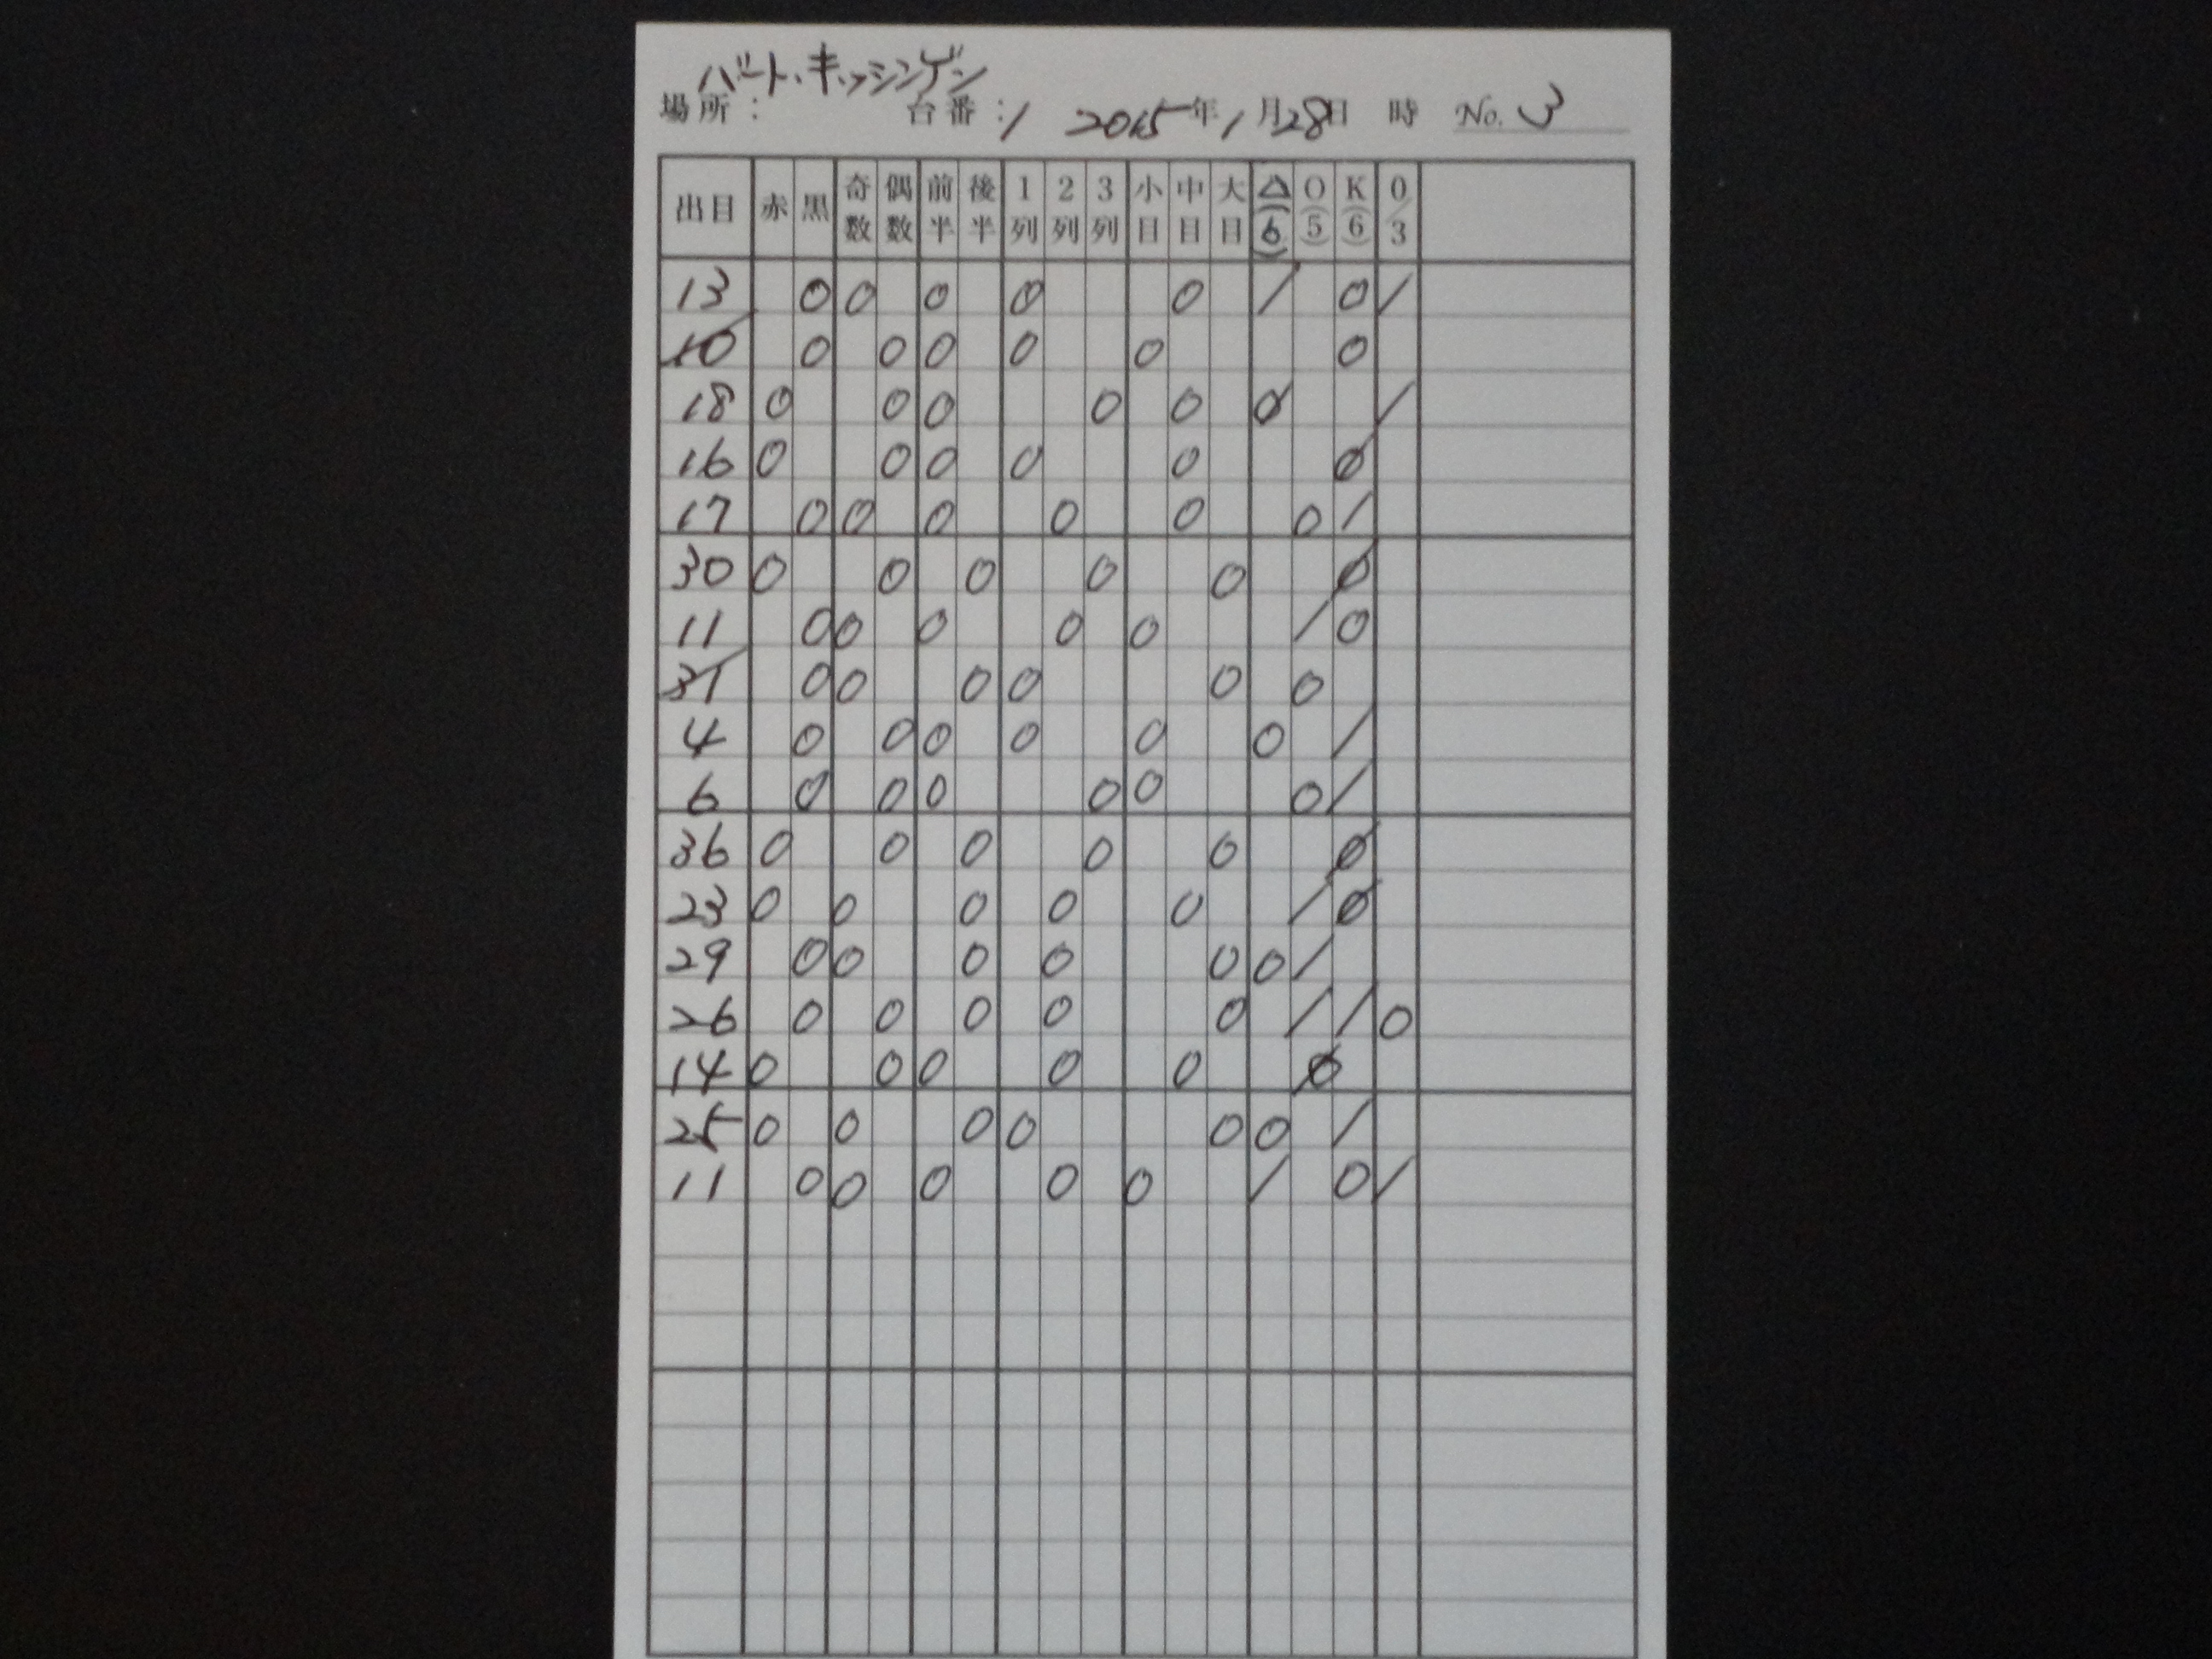 バート・キッシンゲン
場所： 台番：1 2015年1月28日 時 No. 3
出目 赤 黒 奇数 偶数 前半 後半 1列 2列 3列 小目 中目 大目 △(6) O(5) K(6) 0/3
13 0 0 0 0 0 / 0 /
10 0 0 0 0 0 0
18 0 0 0 0 0 0 /
16 0 0 0 0 0 0
17 0 0 0 0 0 0 /
30 0 0 0 0 0 0
11 0 0 0 0 0 / 0
31 0 0 0 0 0 0
4 0 0 0 0 0 0 /
6 0 0 0 0 0 0 /
36 0 0 0 0 0 0
23 0 0 0 0 0 / 0
29 0 0 0 0 0 0 /
26 0 0 0 0 0 / / 0
14 0 0 0 0 0 0
25 0 0 0 0 0 0 /
11 0 0 0 0 0 / 0 /